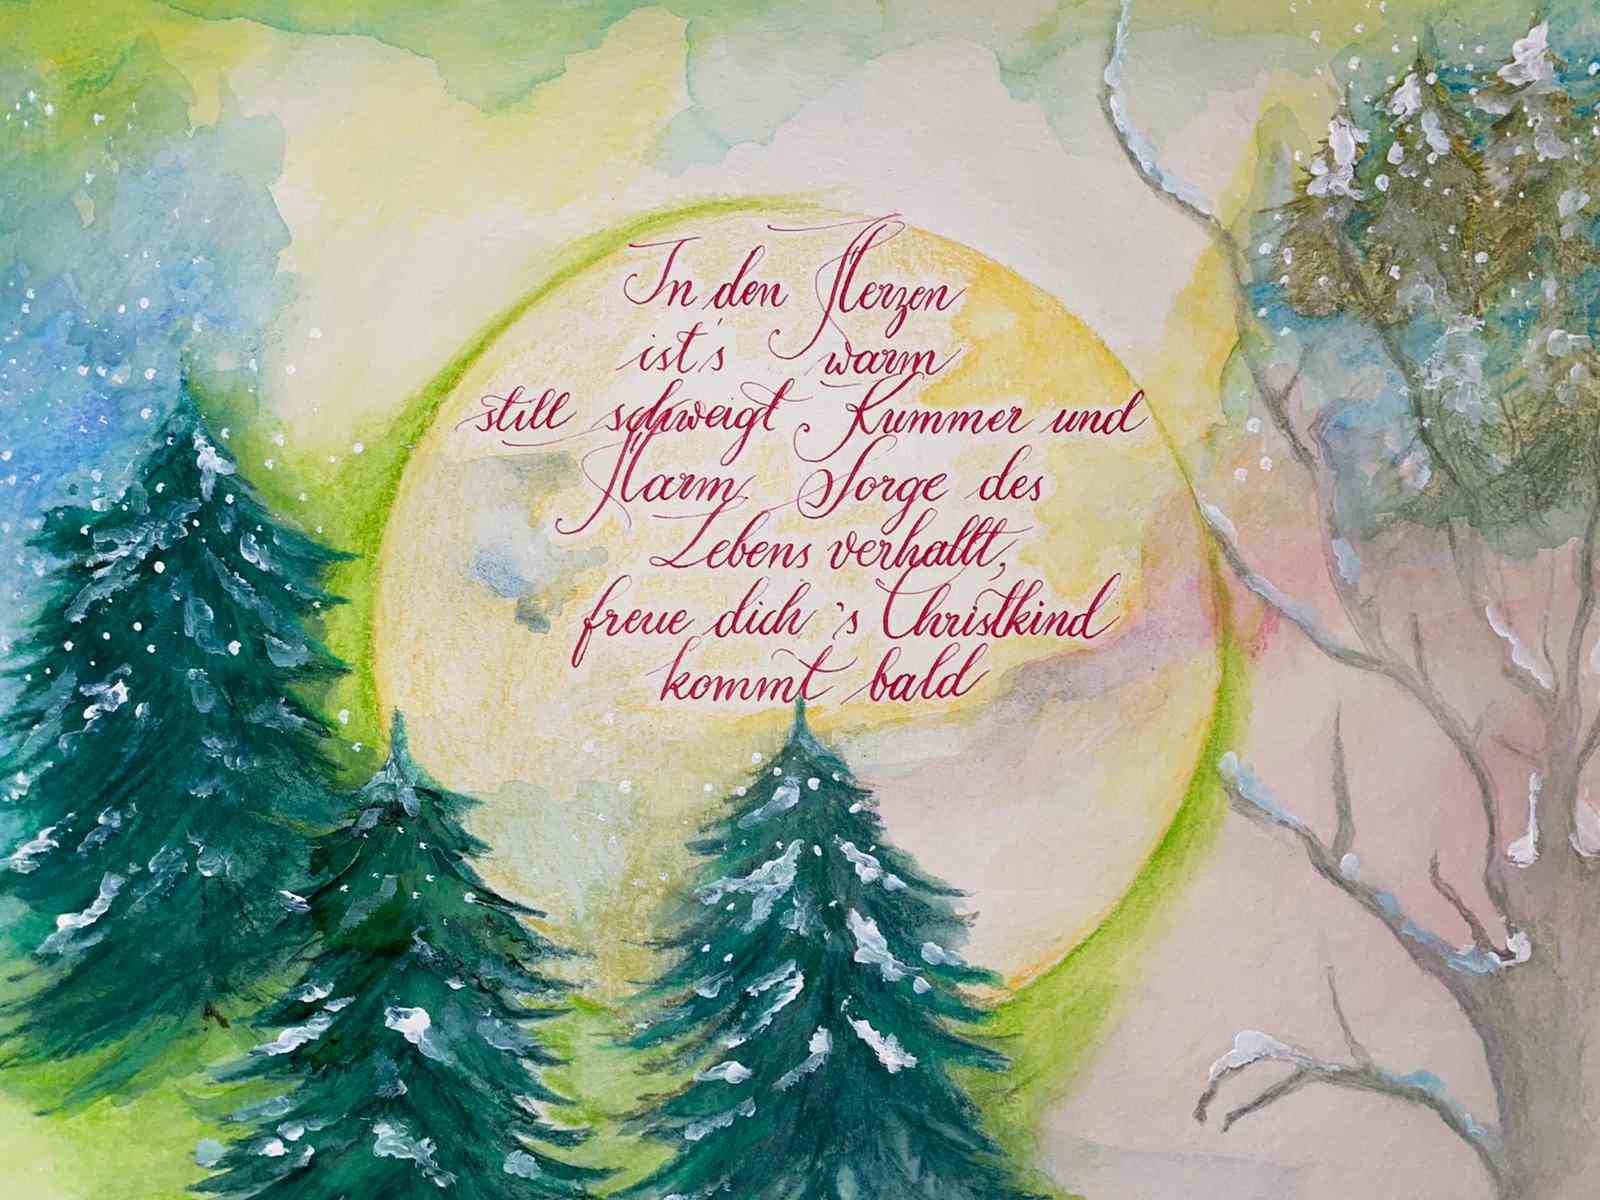 In den Herzen
ist's warm
still schweigt Kummer und
Harm Sorge des
Lebens verhallt,
freue dich 's Christkind
kommt bald